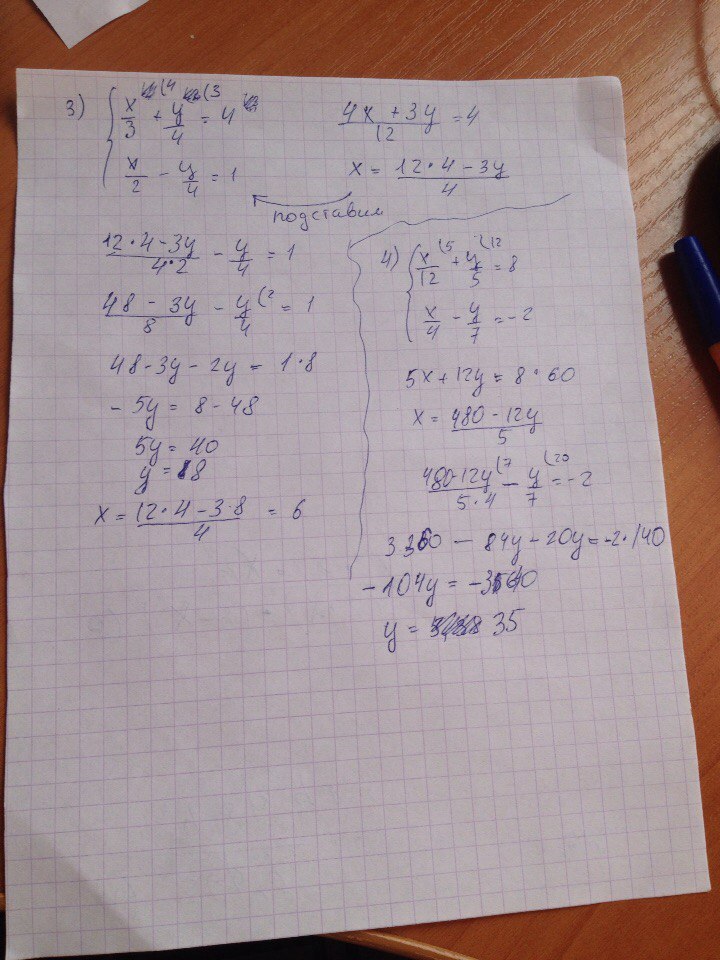 3) { x/3 (4 + y/4 (3 = 4
x/2 - y/4 = 1
(4x + 3y)/12 = 4
x = (12·4 - 3y)/4
подставим
(12·4 - 3y)/(4·2) - y/4 = 1
(48 - 3y)/8 - y/4 (2 = 1
48 - 3y - 2y = 1·8
- 5y = 8 - 48
5y = 40
y = 8
x = (12·4 - 3·8)/4 = 6
4) { x/12 (5 + y/5 (12 = 8
x/4 - y/7 = -2
5x + 12y = 8·60
x = (480 - 12y)/5
(480-12y)/(5·4) (7 - y/7 (20 = -2
3360 - 84y - 20y = -2·140
-104y = -3640
y = 35